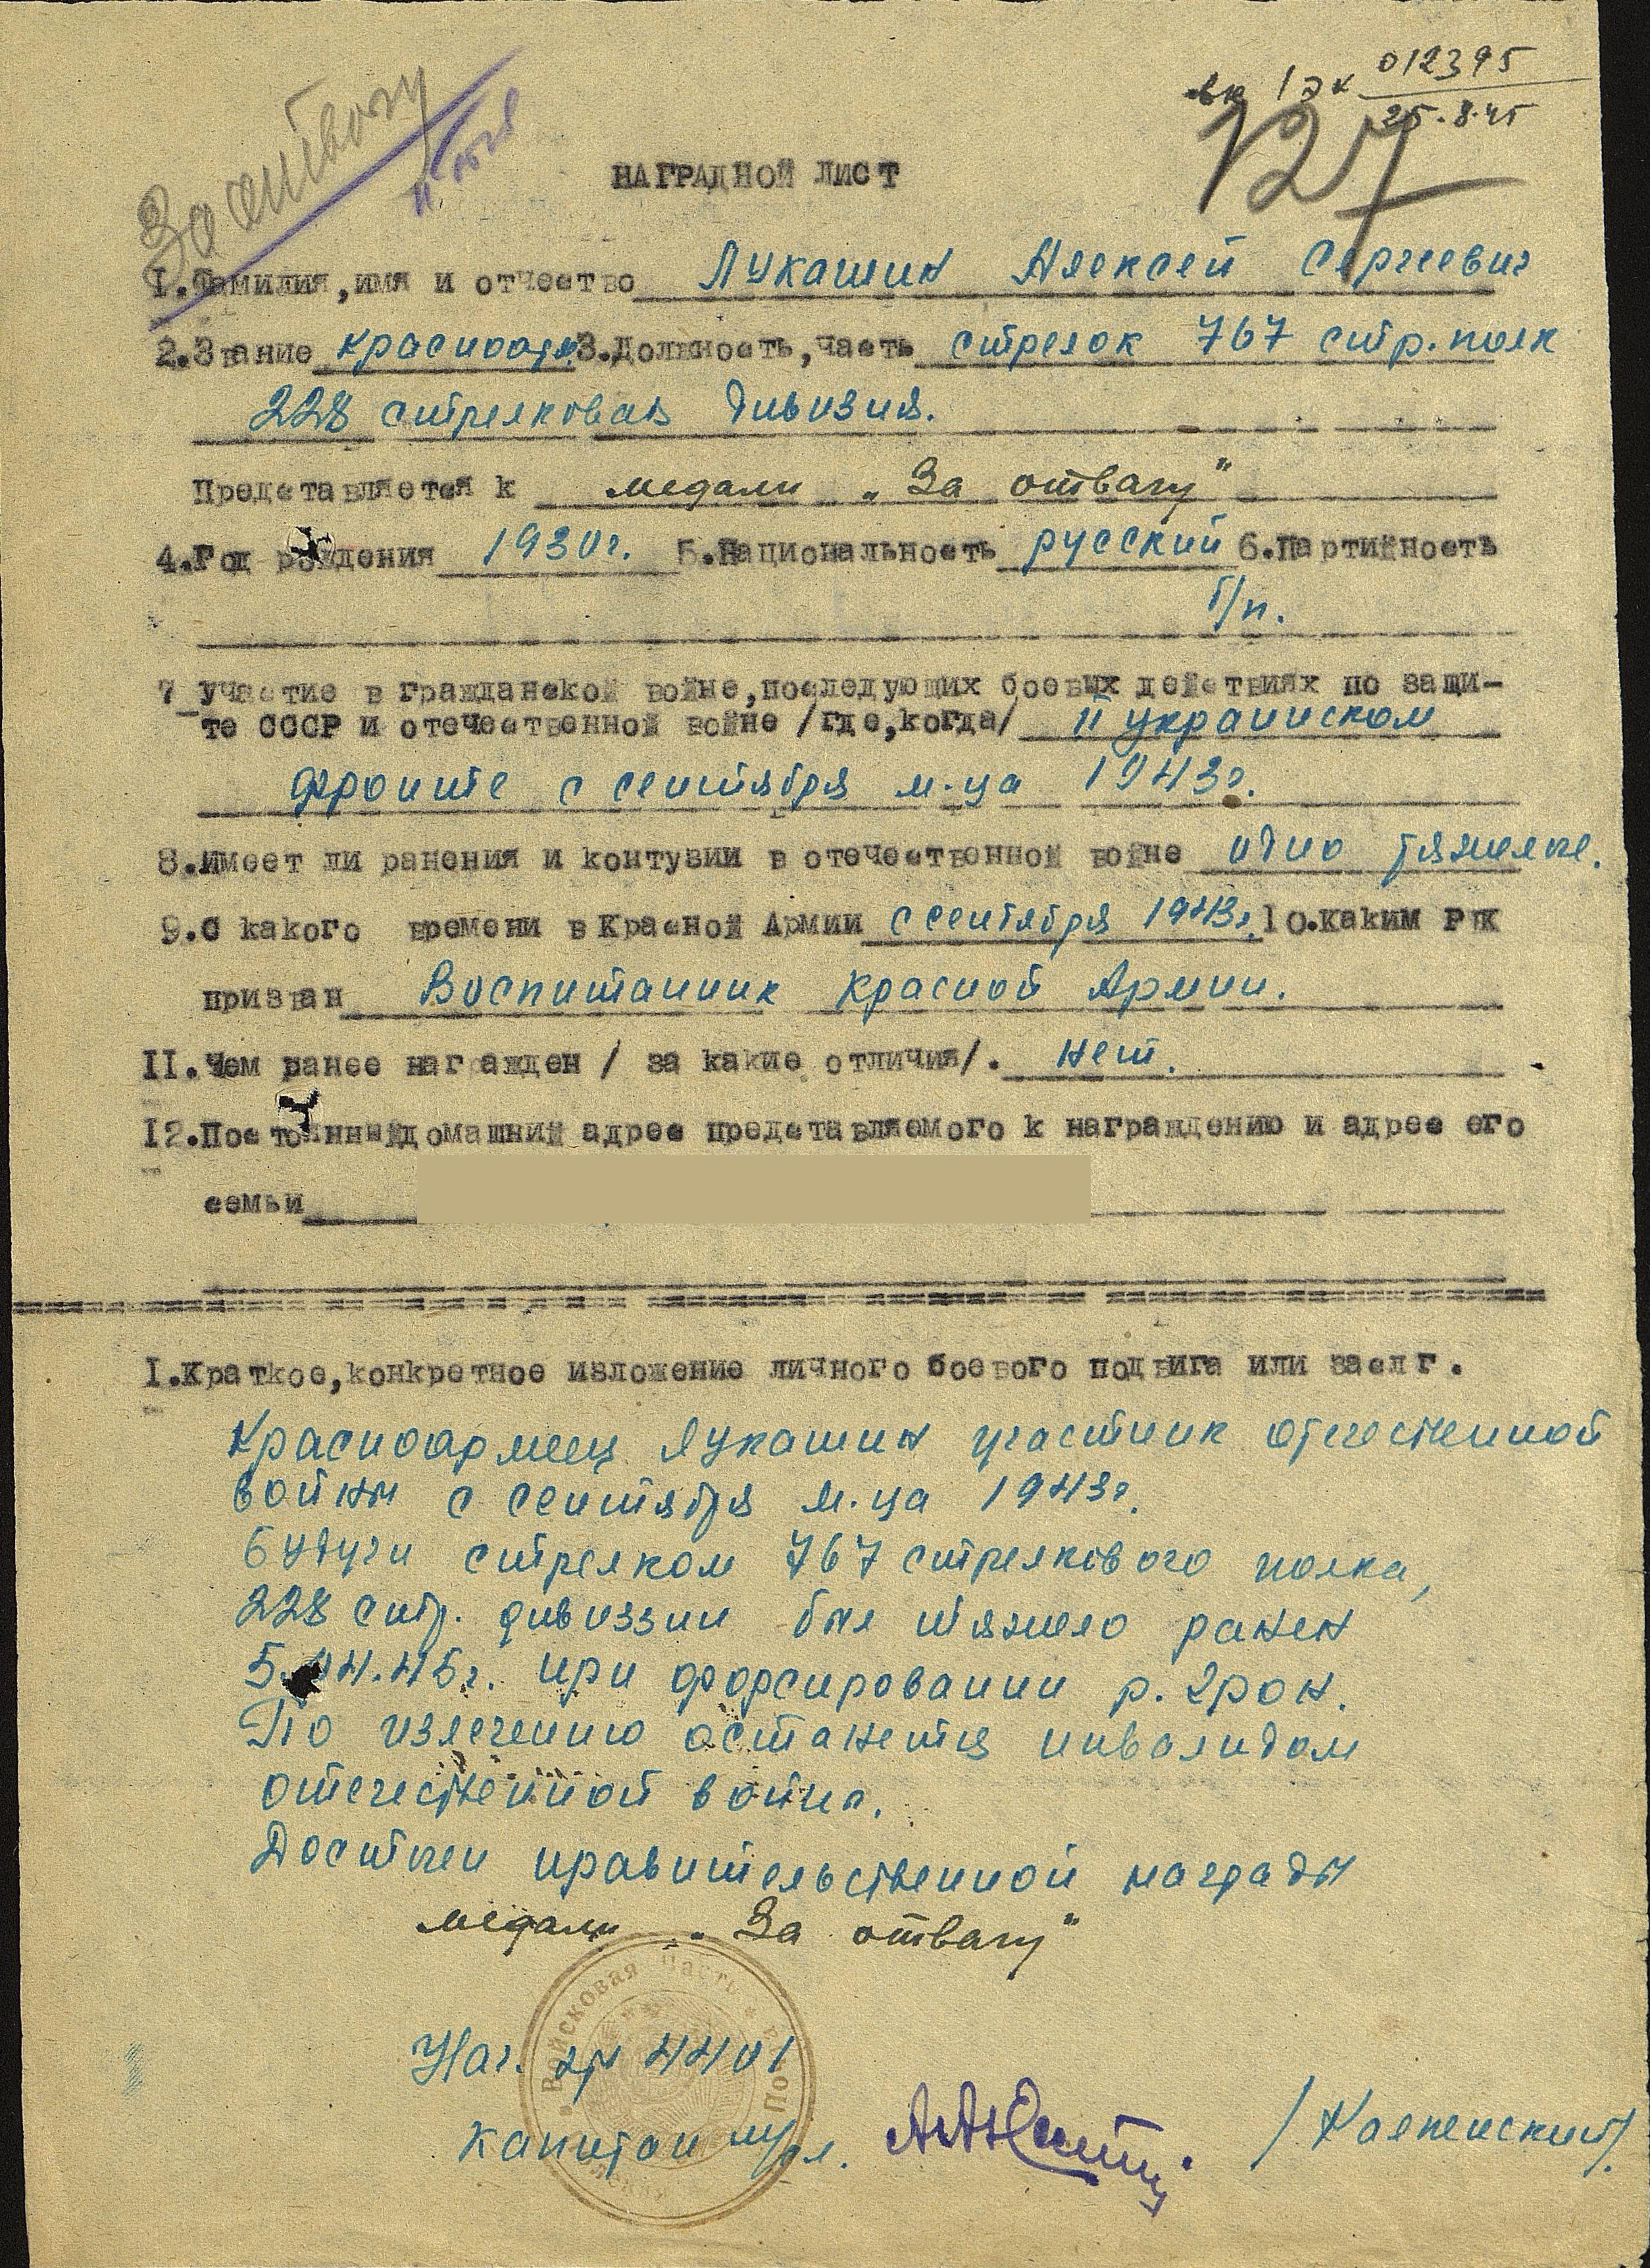 За отвагу
вх 1эк 012395
25.8.45
127
НАГРАДНОЙ ЛИСТ
1.Фамилия,имя и отчество Лукашин Алексей Сергеевич
2.Звание красноарм. 3.Должность,часть стрелок 767 стр. полк
228 стрелковая дивизия.
Представляется к медали „За отвагу"
4.Год рождения 1930г. 5.Национальность русский 6.Партийность
б/п.
7 участие в гражданской войне,последующих боевых действиях по защи-
те СССР и отечественной войне /где,когда/ II украинском
фронте с сентября м-ца 1943г.
8.имеет ли ранения и контузии в отечественной войне одно тяжелое.
9.С какого времени в Красной Армии с сентября 1943г. 10.каким РВК
призван Воспитанник Красной Армии.
II.Чем ранее награжден / за какие отличия/. нет.
12.Постоянный домашний адрес представляемого к награждению и адрес его
семьи
I.Краткое,конкретное изложение личного боевого подвига или заслуг.
Красноармеец Лукашин участник отечественной
войны с сентября м-ца 1943г.
Будучи стрелком 767 стрелкового полка,
228 стр. дивиззии был тяжело ранен
5.04.45г. при форсировании р. Грон.
По излечению останется инвалидом
отечественной войны.
Достоен правительственной награды
медали „За отвагу"
Войсковая часть
Нач. эг 4401
капитан м/сл. /Каменский/.